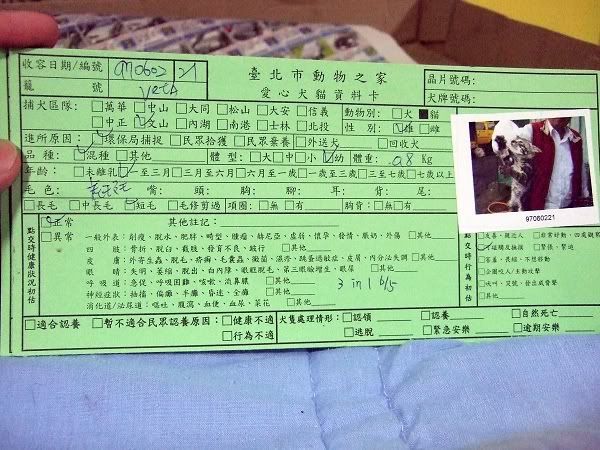 收容日期/編號 970602 21 臺北市動物之家 晶片號碼:
籠號 愛心犬貓資料卡 犬牌號碼:
捕犬區隊: □萬華 □中山 □大同 □松山 □大安 □信義 動物別: □犬 ■貓
□中正 □文山 □內湖 □南港 □士林 □北投 性別: □雄 □雌
進所原因: □環保局捕捉 □民眾拾獲 □民眾棄養 □外送犬 □回收犬
品種: □混種 □其他 體型: □大 □中 □小 □幼 體重: 0.8 Kg
年齡: □未離乳 □至三月 □三月至六月 □六月至一歲 □一歲至三歲 □三至七歲 □七歲以上
毛色: 嘴: 頭: 胸: 腳: 耳: 背: 尾:
□長毛 □中長毛 □短毛 □毛修剪過 項圈: □無 □有 胸背: □無 □有
97060221
點交時健康狀況初估
□正常 其他註記:
□異常 一般外表: 削瘦、脫水、肥胖、畸型、腫瘤、赫尼亞、虛弱、懷孕、發情、脹奶、外傷 □其他
四肢: 骨折、脫臼、截肢、發育不良、跛行 □其他
皮膚: 外寄生蟲、脫毛、疥癬、毛囊蟲、黴菌、濕疹、跳蚤過敏症、皮屑、內分泌失調 □其他
眼睛: 失明、萎縮、脫出、白內障、眼瞼脫毛、第三眼瞼增生、眼屎 □其他
呼吸道: 急促、呼吸困難、咳嗽、流鼻膿 □其他
神經症狀: 抽搐、偏癱、半癱、昏迷、全癱 □其他
消化道/泌尿道: 嘔吐、瀉、血便、血尿、菜花 □其他
3 in 1 6/5
點交時行為初估
□友善、親近人 □非常好動、四處觀望
□可碰觸及撫摸 □緊張、緊迫
□害羞、畏縮、不想移動
□企圖咬人/主動攻擊
□吠叫、哭號、發出威脅聲
□其他
□適合認養 □暫不適合民眾認養原因: □健康不適 犬隻處理情形: □認領 □認養 □自然死亡
□行為不適 □逃脫 □緊急安樂 □逾期安樂